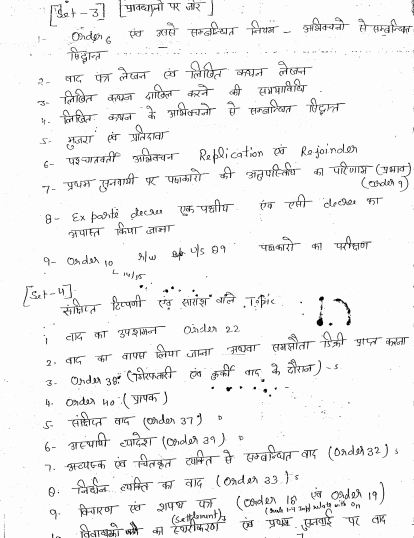 [Set - 3] [प्रावधानों पर जोर]
1- Order 6 एवं उससे सम्बन्धित नियम - अभिवचनो से सम्बन्धित
सिद्धान्त
2- वाद पत्र लेखन एवं लिखित कथन लेखन
3- लिखित कथन दाखिल करने की समयावधि
4- लिखित कथन के अभिवचनो से सम्बन्धित सिद्धान्त
5- मुजरा एवं प्रतिदावा
6- पश्चातवर्ती अभिवचन Replication एवं Rejoinder
7- प्रथम सुनवायी पर पक्षकारो की अनुपस्थिति का परिणाम (प्रभाव)
(Order 9)
8- Ex parte decree एक पक्षीय एवं एसी decree का
अपास्त किया जाना
9- Order 10 r/w U/S 89 पक्षकारो का परीक्षण
14/15
[Set-4]
संक्षिप्त टिप्पणी एवं सारांश वाले Topic
1 वाद का उपशमन Order 22
2. वाद का वापस लिया जाना अथवा समझौता डिक्री प्राप्त करना
3- Order 38 (गिरफ्तारी एवं कुर्की वाद के दौरान) - s
4. Order 40 (प्रापक)
5- संक्षिप्त वाद (Order 37)
6- अस्थायी व्यादेश (Order 39)
7. अवयस्क एवं विकृतचित्त व्यक्ति से सम्बन्धित वाद (Order 32) s
8- निर्धन व्यक्ति का वाद (Order 33) s
9. विचारण एवं शपथ पत्र (Order 18 एवं Order 19)
(Settlement)
विवाद्यको का स्थरीकरण एवं प्रथम सुनवाई पर वाद